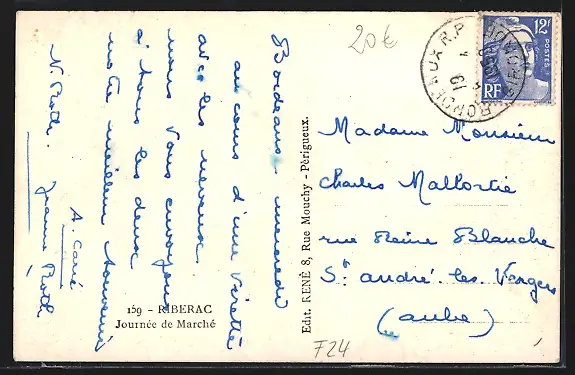 20€
Bordeaux, mercredi
au cours d'une virettè
avec les neveux
nous vous envoyons
à tous les deux
notre meilleur souvenir
A. Carré
N. Roth. Jeanne Roth
159 - RIBERAC
Journée de Marché
Edit. RENÉ 8, Rue Mouchy - Périgueux.
BORDEAUX R.P.
GIRONDE
12F
POSTES
RF
Madame Monsieur
Charles Mallortie
rue Reine Blanche
St. andré les Vergers
(aube)
F24